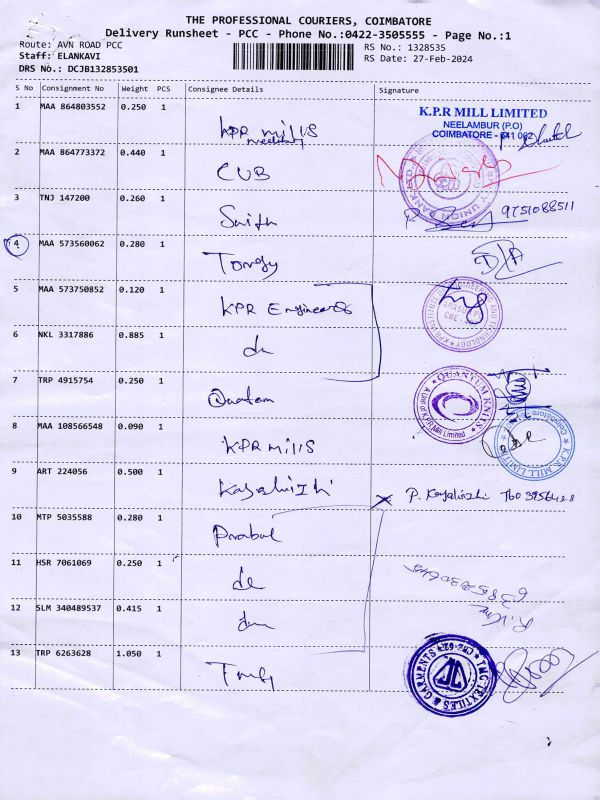 THE PROFESSIONAL COURIERS, COIMBATORE
Delivery Runsheet - PCC - Phone No.:0422-3505555 - Page No.:1
Route: AVN ROAD PCC
RS No.: 1328535
Staff: ELANKAVI
RS Date: 27-Feb-2024
DRS No.: DCJB132853501
S No Consignment No Weight PCS Consignee Details Signature
1 MAA 864803552 0.250 1 KPR mills K.P.R MILL LIMITED
Neelambur NEELAMBUR (P.O)
COIMBATORE - 641 062
2 MAA 864773372 0.440 1 CUB
3 TNJ 147200 0.260 1 9751088511
4 MAA 573560062 0.280 1
5 MAA 573750852 0.120 1 KPR Engineers
6 NKL 3317886 0.885 1 do
7 TRP 4915754 0.250 1 QUANTUM KNITS
A Unit of K.P.R. Mill Limited
8 MAA 108566548 0.090 1 KPR mills K.P.R. MILL LIMITED
Coimbatore
9 ART 224056 0.500 1 Kayalvizhi P. Kayalvizhi
10 MTP 5035588 0.280 1
11 HSR 7061069 0.250 1 do
12 SLM 340489537 0.415 1 do
13 TRP 6263628 1.050 1 TMG TEXTILES & GARMENTS CBE-62